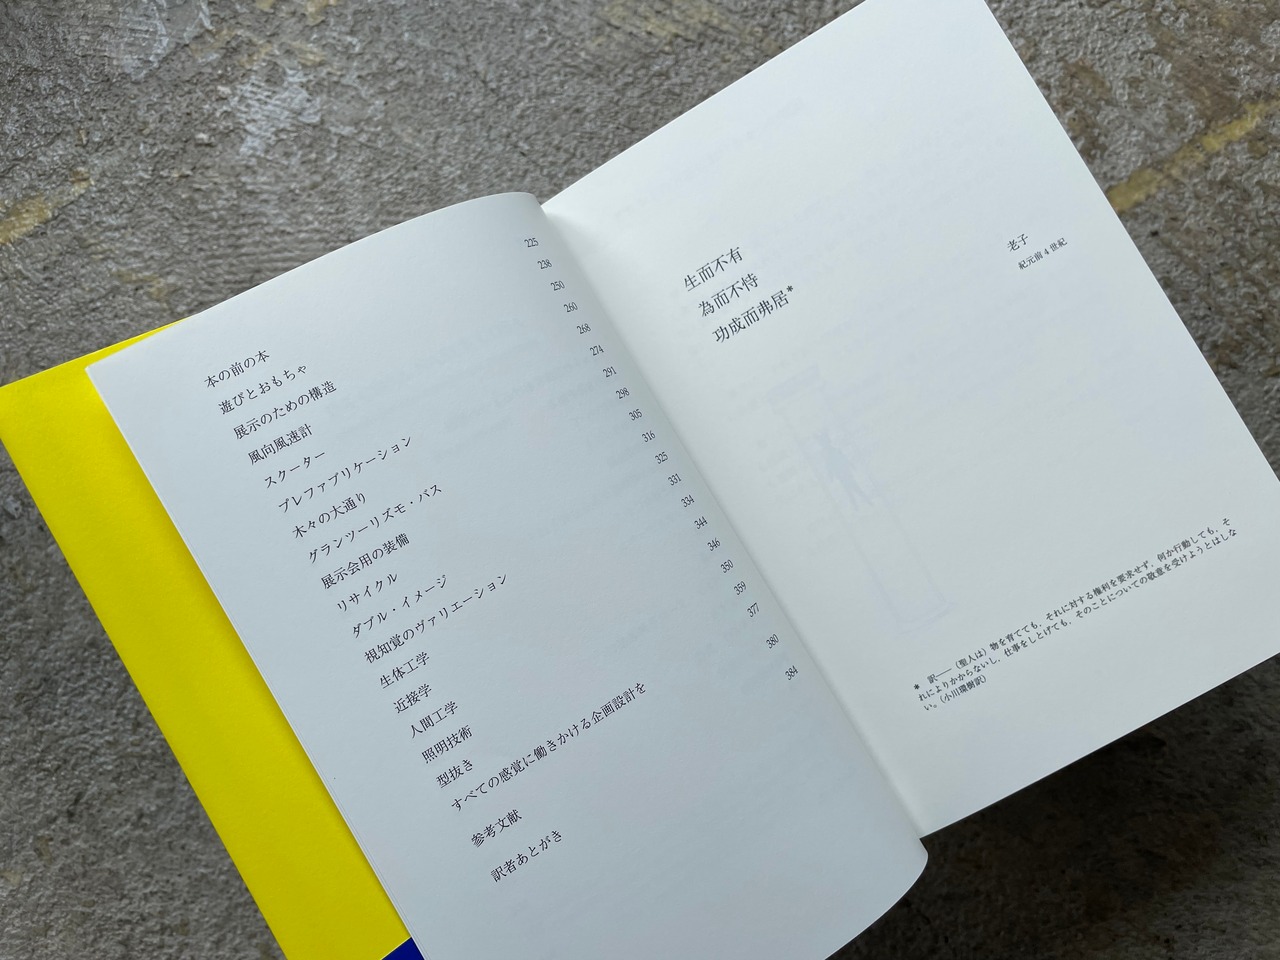 本の前の本 225
遊びとおもちゃ 238
展示のための構造 250
風向風速計 260
スクーター 268
プレファブリケーション 274
木々の大通り 291
グランツーリズモ・バス 298
展示会用の装備 305
リサイクル 316
ダブル・イメージ 325
視知覚のヴァリエーション 331
生体工学 334
近接学 344
人間工学 346
照明技術 350
型抜き 359
すべての感覚に働きかける企画設計を 377
参考文献 380
訳者あとがき 384
生而不有
為而不恃
功成而弗居*
老子
紀元前4世紀
* 訳――(聖人は)物を育てても、それに対する権利を要求せず、何か行動しても、そ
れによりかからないし、仕事をしとげても、そのことについての敬意を受けようとはしな
い。(小川環樹訳)